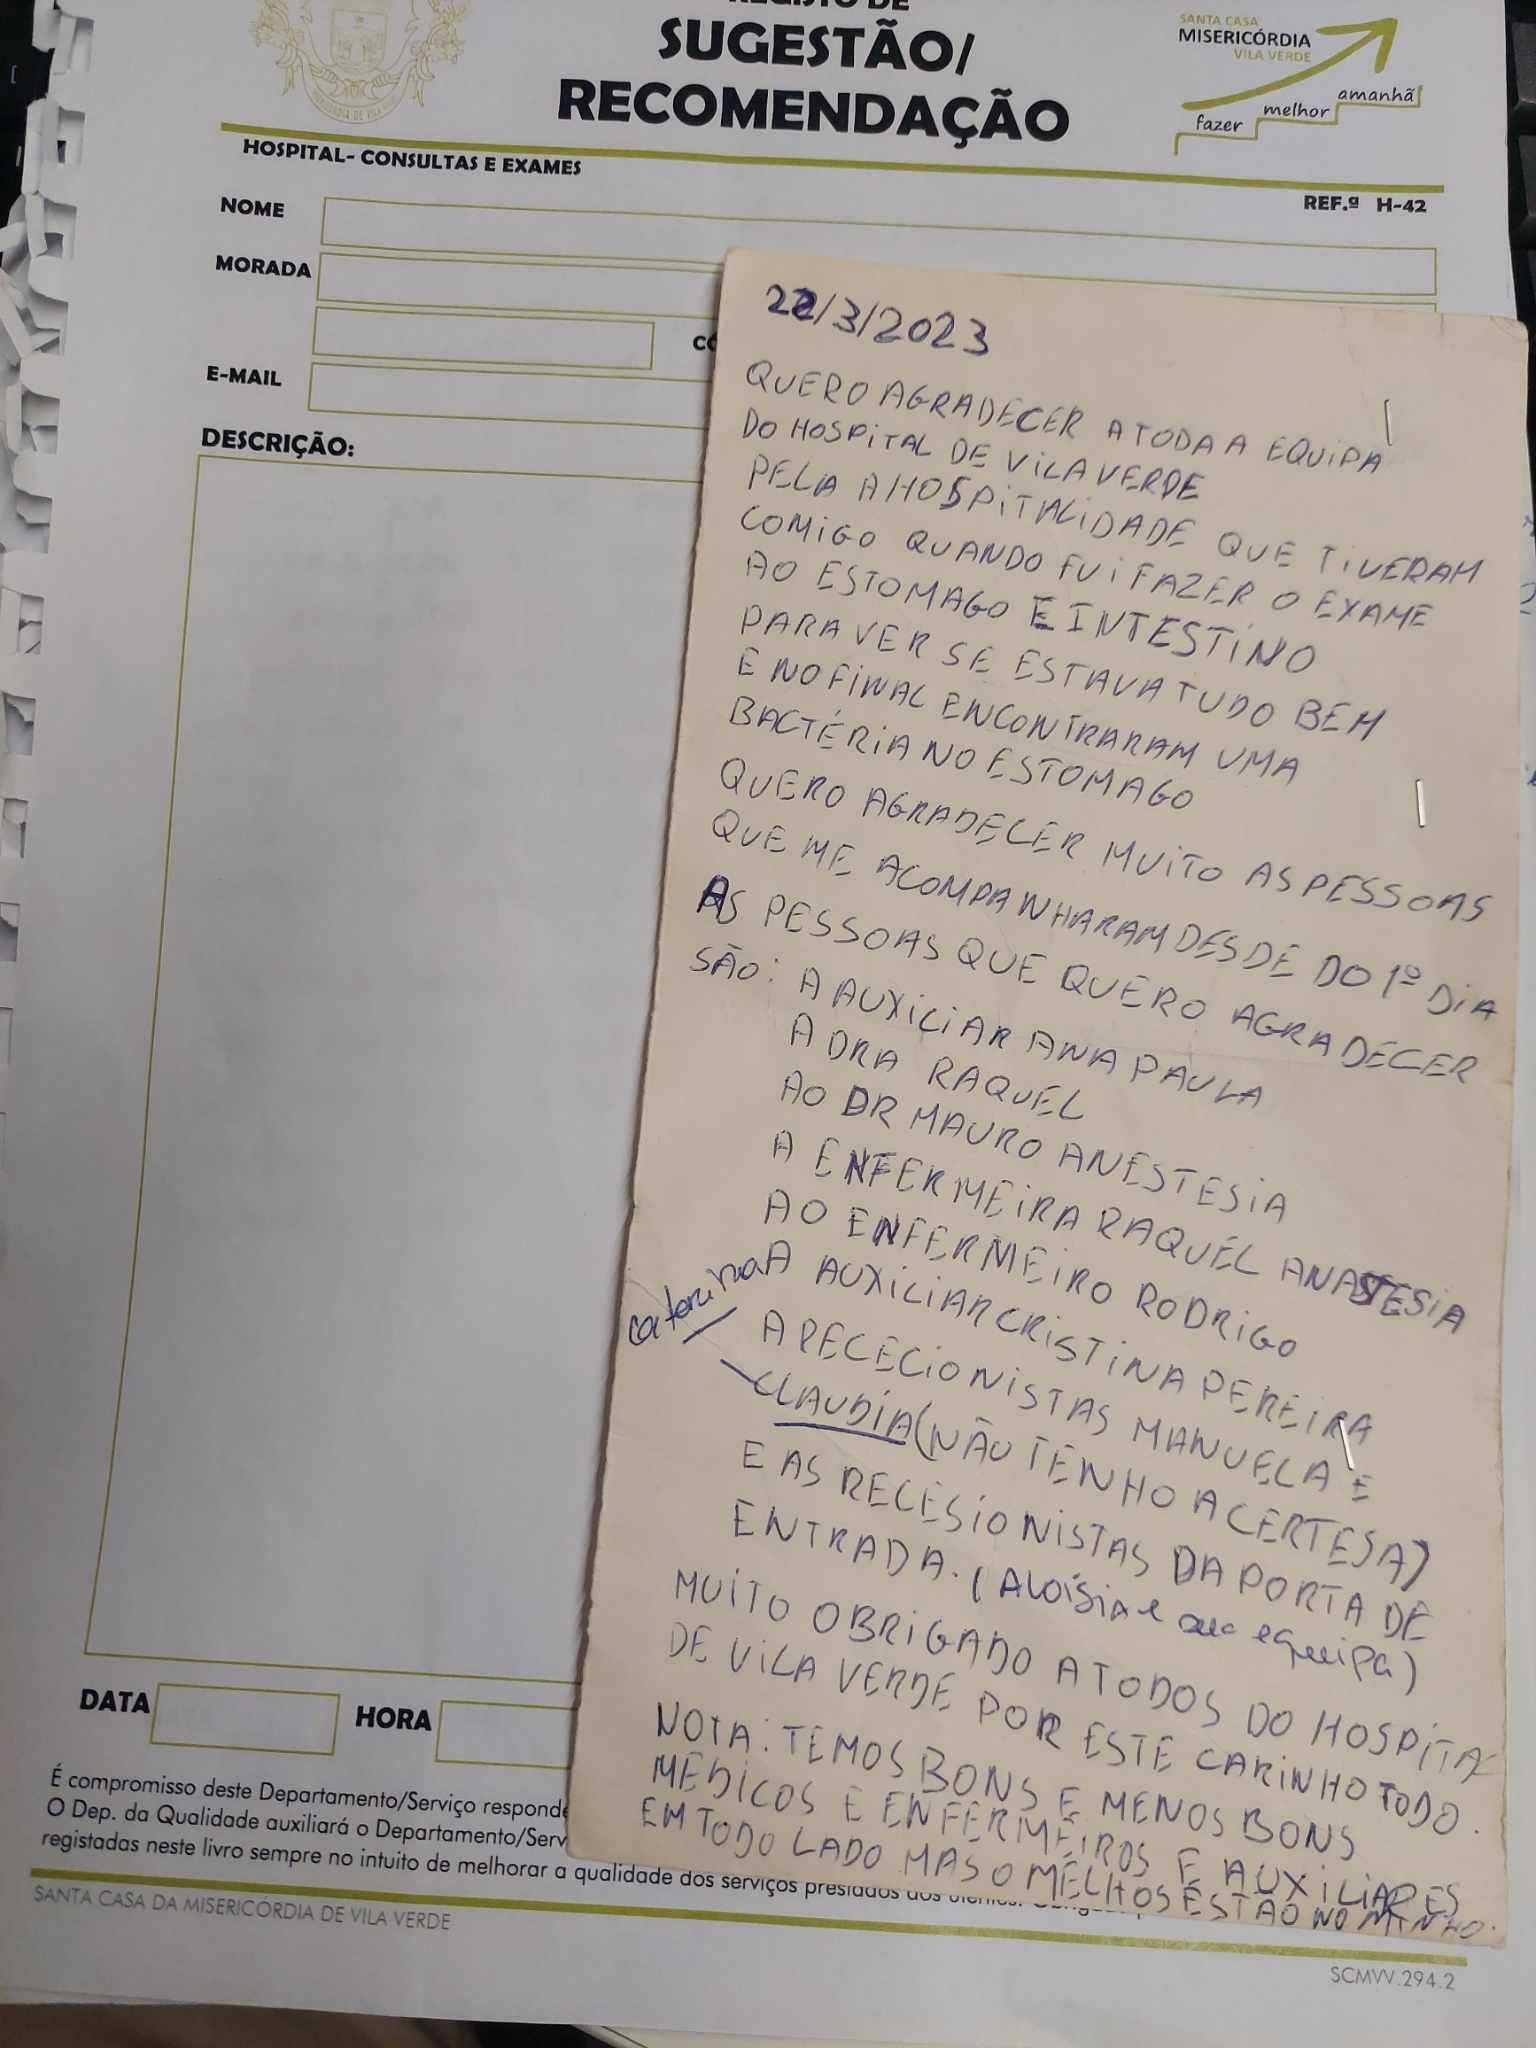 REGISTO DE
SUGESTÃO/
RECOMENDAÇÃO
SANTA CASA
MISERICÓRDIA
VILA VERDE
fazer melhor amanhã
HOSPITAL- CONSULTAS E EXAMES
REF.ª H-42
NOME
MORADA
E-MAIL
DESCRIÇÃO:
22/3/2023
QUERO AGRADECER A TODA A EQUIPA
DO HOSPITAL DE VILA VERDE
PELA A HOSPITALIDADE QUE TIVERAM
COMIGO QUANDO FUI FAZER O EXAME
AO ESTOMAGO E INTESTINO
PARA VER SE ESTAVA TUDO BEM
E NO FINAL ENCONTRARAM UMA
BACTÉRIA NO ESTOMAGO
QUERO AGRADECER MUITO AS PESSOAS
QUE ME ACOMPANHARAM DESDE DO 1º DIA
AS PESSOAS QUE QUERO AGRADECER
SÃO: A AUXILIAR ANA PAULA
A DRA RAQUEL
AO DR MAURO ANESTESIA
A ENFERMEIRA RAQUEL ANASTESIA
AO ENFERMEIRO RODRIGO
A AUXILIAR CRISTINA PEREIRA
Catarina
A RECECIONISTAS MANUELA E
CLAUDIA (NÃO TENHO A CERTESA)
E AS RECESIONISTAS DA PORTA DE
ENTRADA. (Aloísia e sua equipa)
MUITO OBRIGADO A TODOS DO HOSPITAL
DE VILA VERDE POR ESTE CARINHO TODO.
NOTA: TEMOS BONS E MENOS BONS
MEDICOS E ENFERMEIROS E AUXILIARES
EM TODO LADO MAS O MELHOS ESTÃO NO MINHO.
DATA
HORA
É compromisso deste Departamento/Serviço
O Dep. da Qualidade auxiliará o Departamento/
registadas neste livro sempre no intuito de melhorar a qualidade dos serviços prestados aos
SANTA CASA DA MISERICÓRDIA DE VILA VERDE
SCMVV.294.2